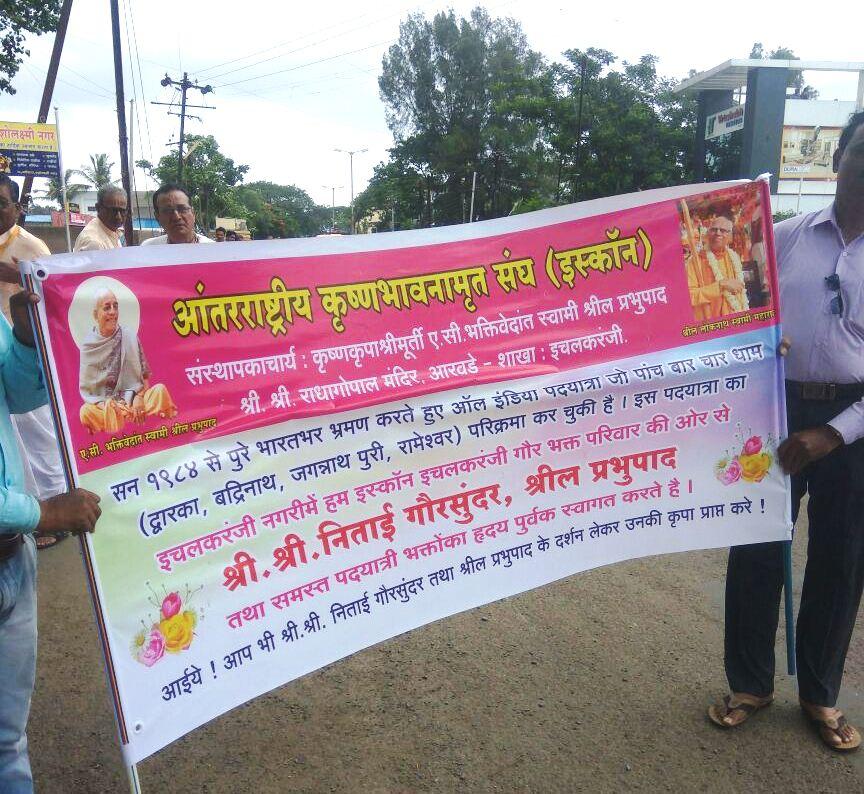 आंतरराष्ट्रीय कृष्णभावनामृत संघ (इस्कॉन)
संस्थापकाचार्य : कृष्णकृपाश्रीमूर्ती ए.सी.भक्तिवेदांत स्वामी श्रील प्रभुपाद
श्री. श्री. राधागोपाल मंदिर, आरवडे - शाखा : इचलकरंजी.
ए.सी. भक्तिवेदांत स्वामी श्रील प्रभुपाद
श्रील लोकनाथ स्वामी महाराज
सन १९८४ से पुरे भारतभर भ्रमण करते हुए ऑल इंडिया पदयात्रा जो पांच बार चार धाम
(द्वारका, बद्रिनाथ, जगन्नाथ पुरी, रामेश्वर) परिक्रमा कर चुकी है । इस पदयात्रा का
इचलकरंजी नगरीमें हम इस्कॉन इचलकरंजी गौर भक्त परिवार की ओर से
श्री.श्री.निताई गौरसुंदर, श्रील प्रभुपाद
तथा समस्त पदयात्री भक्तोंका हृदय पुर्वक स्वागत करते है ।
आईये ! आप भी श्री.श्री. निताई गौरसुंदर तथा श्रील प्रभुपाद के दर्शन लेकर उनकी कृपा प्राप्त करे !